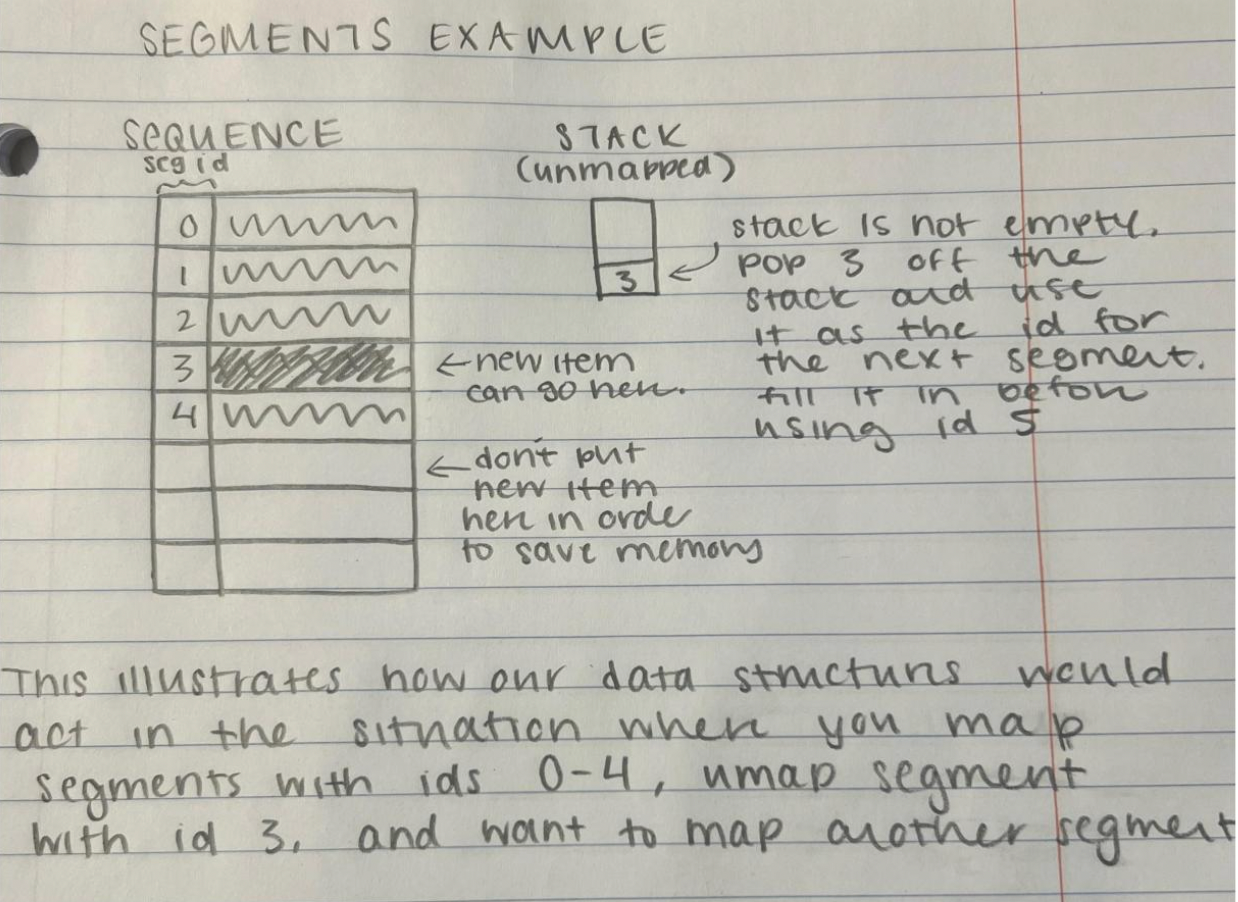 SEGMENTS EXAMPLE
SEQUENCE
seg id
0
1
2
3
4
←new item
can go here.
←don't put
new item
here in order
to save memory
STACK
(unmapped)
3
stack is not empty.
pop 3 off the
stack and use
it as the id for
the next segment.
fill it in before
using id 5
This illustrates how our data structures would
act in the situation when you map
segments with ids 0-4, umap segment
with id 3, and want to map another segment